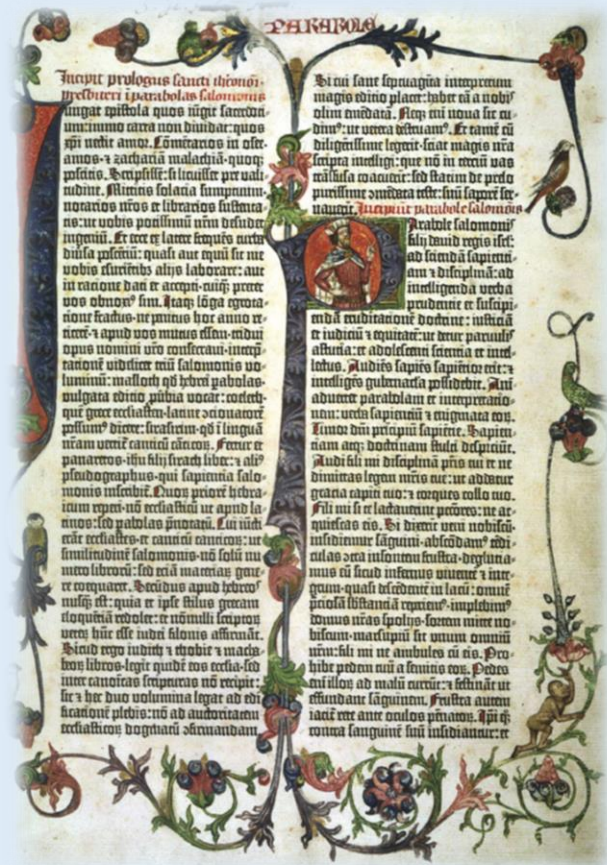 PARABOLE
Incipit prologus sancti iheronimi
presbiteri ī parabolas salomonis
Iungat epistola quos iūgit sacerdoti-
um: immo carta non dividat: quos
xp̄i nectit amor. Cōmētarios in osee.
amos. et zachariā malachiā. quoq;
poscitis. Scripsissē: si licuisset pre vali-
tudine. Mittitis solacia sumptuum.
notarios nr̄os et librarios sustenta-
tis: ut vobis potissimū nr̄m desudet
ingeniū. Et ecce ex latere frequēs turba
diversa poscētiū: quasi aut equū sit me
vobis esuriētib; aliis laborare: aut
in ratione dati et accepti. cuiq; preter
vos obnoxiꝰ sim. Itaq; lōga egrota-
tione fractus. ne penitus hoc anno re-
ticerē. et apud vos mutus essem. tridui
opus nomini vr̄o consecravi. interp̄-
tationē videlicet triū salomonis vo-
luminū: masloth qd̄ hebrei pabolas.
vulgata editio p̄vbia vocat: coeleth.
quē grece ecclesiasten. latine ɔcionatorē
possumꝰ dicere: sirasirim. qd̄ ī linguā
nr̄am vertit̄ canticū cāticor̄. Fertur et
panaretos. ihu filii sirach liber: et aliꝰ
pseudographus. qui sapientia salo-
monis inscribit̄. Quor̄ priorē hebra-
icum repperi. nō ecclesiasticū ut apud la-
tinos: sed pabolas p̄notatū. Cui iūcti
erāt ecclesiastes. et canticū canticor̄: ut
similitudinē salomonis. nō solū nu-
mero librorū: sed etiā materiar̄ gene-
re coequaret. Secūdus apud hebreos
nusq̄ est: quia et ipse stilus grecam
eloquētiā redolet: et nōnulli scriptor̄
veter̄ hūc esse iudei filonis affirmāt.
Sicud ergo iudith et thobie et macha-
beor̄ libros. legit quidē eos ecclesia. sed
inter canōicas scripturas nō recipit:
sic et hec duo volumina legat ad edi-
ficationē plebis: nō ad auctoritatem
ecclesiasticor̄ dogmatū ɔfirmandam.
Si cui sane septuagīta interpretum
magis editio placet: habet eā a nobis
olim emēdatā. Neq; enī nova sic cu-
dimꝰ: ut vetera destruamꝰ. Et tamē cū
diligētissime legerit. sciat magis nr̄a
scripta intelligi: que nō in terciū vas
trāsfusa coacuerīt: sed statim de prelo
purissime ɔmēdata teste: suū saporē ser-
vaverīt. Incipiunt parabole salomonis
Parabole salomonis
filii david regis isrl̄:
ad sciendā sapienti-
am et disciplinā: ad
intelligenda verba
prudentie et suscipi-
endā eruditationē doctrine: iusticiā
et iudiciū et equitatē: ut detur parvulis
astutia: et adolescenti scientia et intel-
lectus. Audiēs sapiēs sapiētior erit: et
intelligēs gubernacla possidebit. Ani-
advertet parabolam et interpretatio-
nem: verba sapientiū et enigmata eor̄.
Timor dn̄i principiū sapiētie. Sapien-
tiam atq; doctrinam stulti despiciūt.
Audi fili mi disciplinā pr̄is tui et ne
dimittas legem mr̄is tue: ut addatur
gracia capiti tuo: et torques collo tuo.
Fili mi si te lactaverint pctōres: ne ac-
quiescas eis. Si dixerīt veni nobiscū-
insidiemur sāguini. abscōdamꝰ tēdi-
culas ɔtra insontem frustra. deglucia-
mus eū sicud infernus viventē et inte-
grum. quasi descēdentē in lacū: omnē
p̄ciosā substātiā reperiemꝰ. implebimꝰ
domus nr̄as spoliis. sortem mitte no-
biscum. marsupiū sit unum omniū
nr̄m: fili mi ne ambules cū eis. Pro-
hibe pedem tuū a semitis eor̄. Pedes
eni illor̄ ad malū currūt: et festināt ut
effundant sāguinem. Frustra autem
iacit̄ rete ante oculos pēnator̄. Ipi q;
contra sanguinē suū insidiantur: et